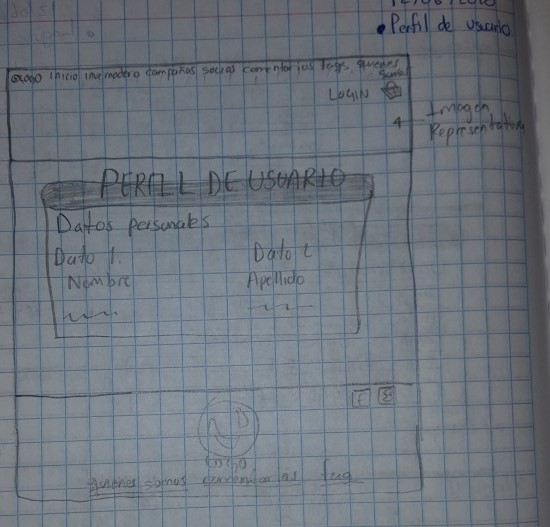 • Perfil de usuario
Logo Inicio invernadero campañas socias comentarios fags quienes
somos
LOGIN
Imagen
Representativa
PERFIL DE USUARIO
Datos personales
Dato 1. Dato 2
Nombre Apellido
f
LOGO
quienes somos comentarios faq